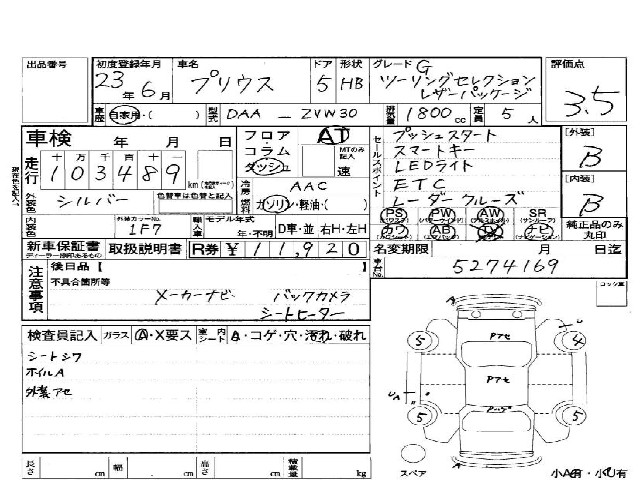 出品番号 初度登録年月 車名 ドア 形状 グレード 評価点
23年6月 プリウス 5 HB G ツーリングセレクション レザーパッケージ 3.5
車歴 自家用・( ) 型式 DAA - ZVW30 排気量 1800cc 定員 5人
車検 年 月 日 フロア・コラム・ダッシュ AT MTのみ記入 速
走行 十 万 千 百 十 一 103489 km
外装色 シルバー 色替車は色替と記入
冷房 AAC
燃料 ガソリン・軽油・( )
内装色 外装カラーNo. 1F7 輸入車 モデル年式 年・不明 D車・並 右H・左H
新車保証書 ディーラー捺印あるもの 取扱説明書 R券 ¥11,920
セールスポイント
プッシュスタート
スマートキー
LEDライト
ETC
レーダークルーズ
PS PW AW SR
カワ AB TV ナビ
[外装] B
[内装] B
純正品のみ丸印
名変期限 月 日迄
車台No. 5274169
現在の色を記入。
注意事項 後日品【 】
不具合箇所等
メーカーナビ バックカメラ
シートヒーター
検査員記入 ガラス A・X要ス 室内シート A・コゲ・穴・汚れ・破れ
シートシワ
ホイルA
外装アセ
長さ cm 幅 cm 高さ cm 積載量 kg
A
U
5 Pアセ 4
Pアセ
UA
5 5
A
スペア
小A有・小U有